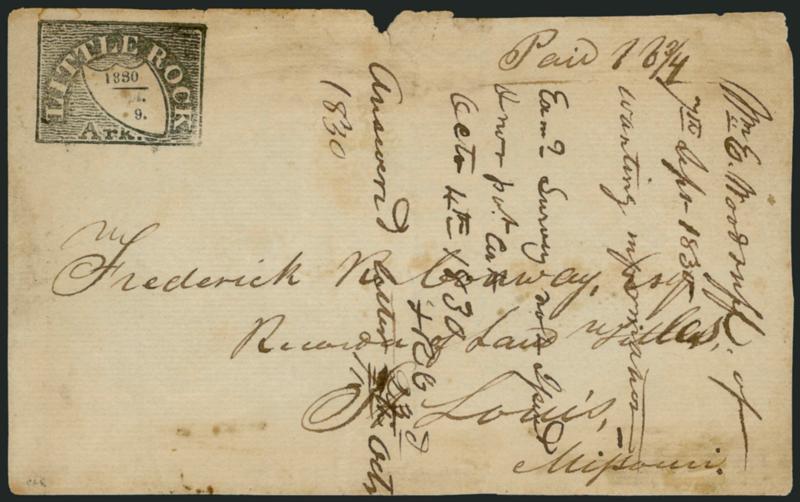 LITTLE ROCK
1830
9.
Ark.
Paid 18¾
Frederick R. Conway, Esq
Recorder of Land Titles,
St Louis,
Missouri.
Wm E. Woodruff. of
7th Sepr 1830
wanting information
Survey
Octo 4th 1830
Answerd letter Octr
1830